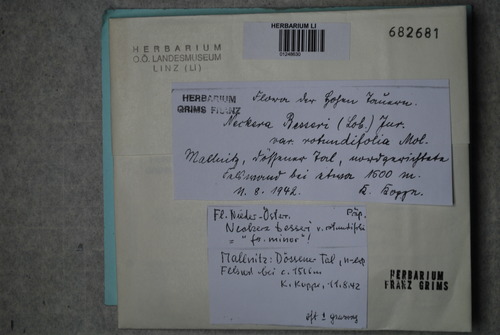 HERBARIUM
O.Ö. LANDESMUSEUM
LINZ (LI)
HERBARIUM LI
682681
HERBARIUM
GRIMS FRANZ
Flora der Hohen Tauern.
Neckera Besseri (Lob.) Jur.
var. rotundifolia Mol.
Mallnitz, Dössener Tal, nordgerichtete
Felswand bei etwa 1500 m.
11. 8. 1942. K. Koppe.
Fl. Präp.
Neckera besseri v. rotundifolia
= "fo. minor"!
Mallnitz: Dössener Tal, n-exp
Felswd bei c. 1500 m
K. Koppe, 11.8.42
HERBARIUM
FRANZ GRIMS